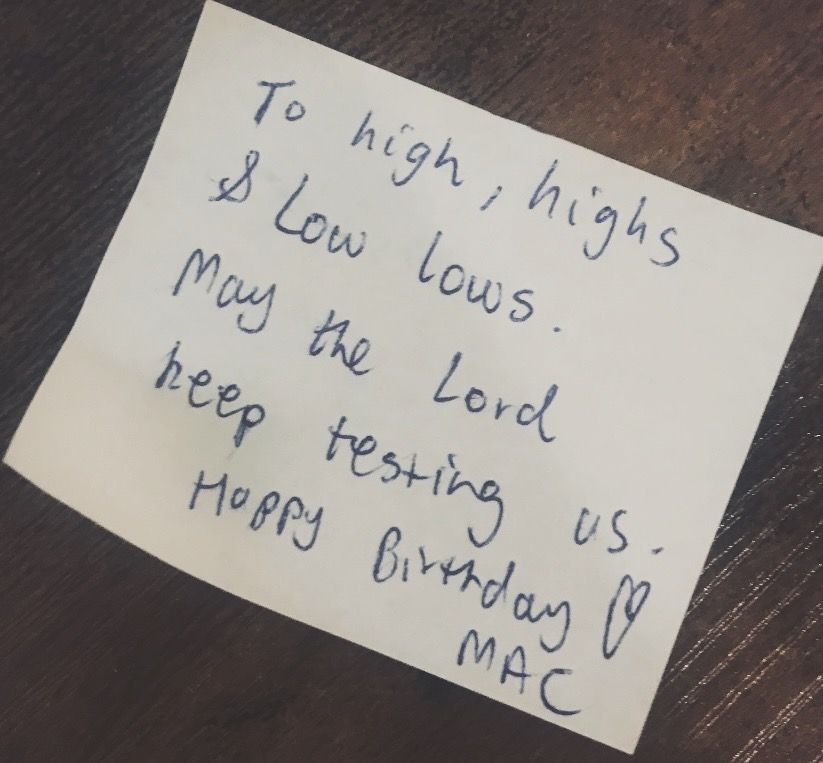 To high, highs
& Low lows.
May the Lord
keep testing us.
Happy Birthday ♡
MAC